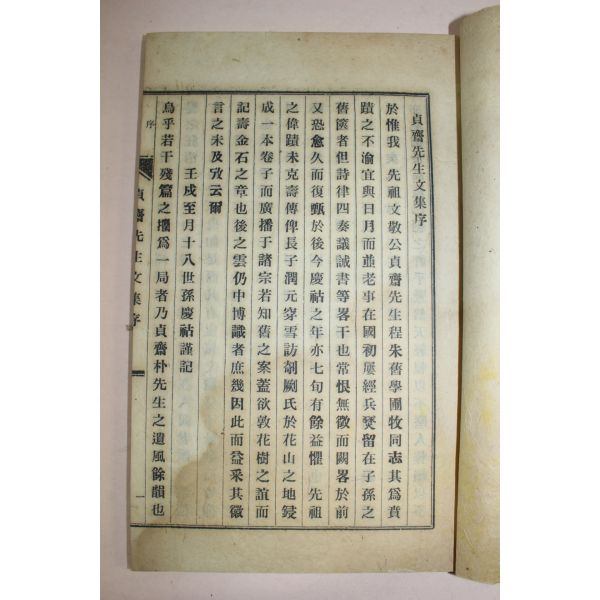 貞齋先生文集序
於惟我 先祖文敬公貞齋先生程朱舊學圃牧同志其爲賁
蹟之不渝宜與日月而並老事在國初屢經兵燹留在子孫之
舊篋者但詩律四奏議誡書等畧干也常恨無徵而闕畧於前
又恐愈久而復甄於後今慶祜之年亦七旬有餘益懼 先祖
之偉蹟未克壽傳俾長子潤元穿雪訪剞劂氏於花山之地鋟
成一本卷子而廣播于諸宗若知舊之案蓋欲敦花樹之誼而
記壽金石之章也後之雲仍中博識者庶幾因此而益采其徽
言之未及攷云爾
壬戌至月十八世孫慶祜謹記
烏乎若干殘篇之攟爲一局者乃貞齋朴先生之遺風餘韻也
序
貞齋先生文集序
一